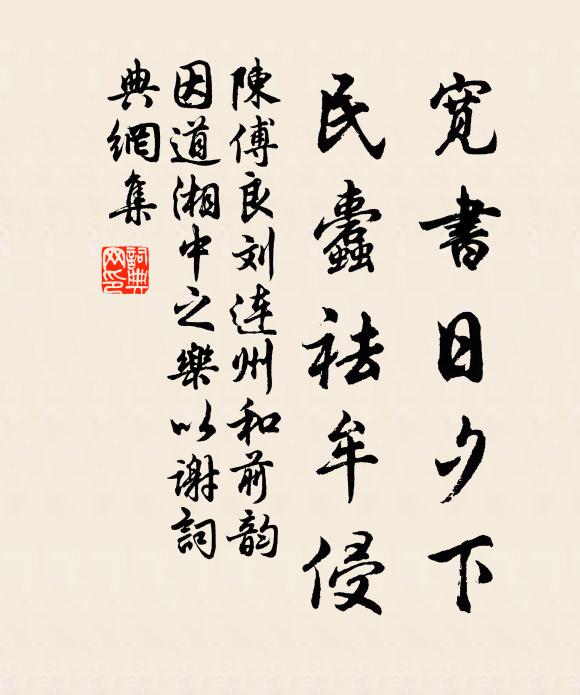 寛書日夕下
民蠹祛牟侵
陳傅良刘連州和前韵
因道湘中之樂以谢詞
典網集
詞典网印